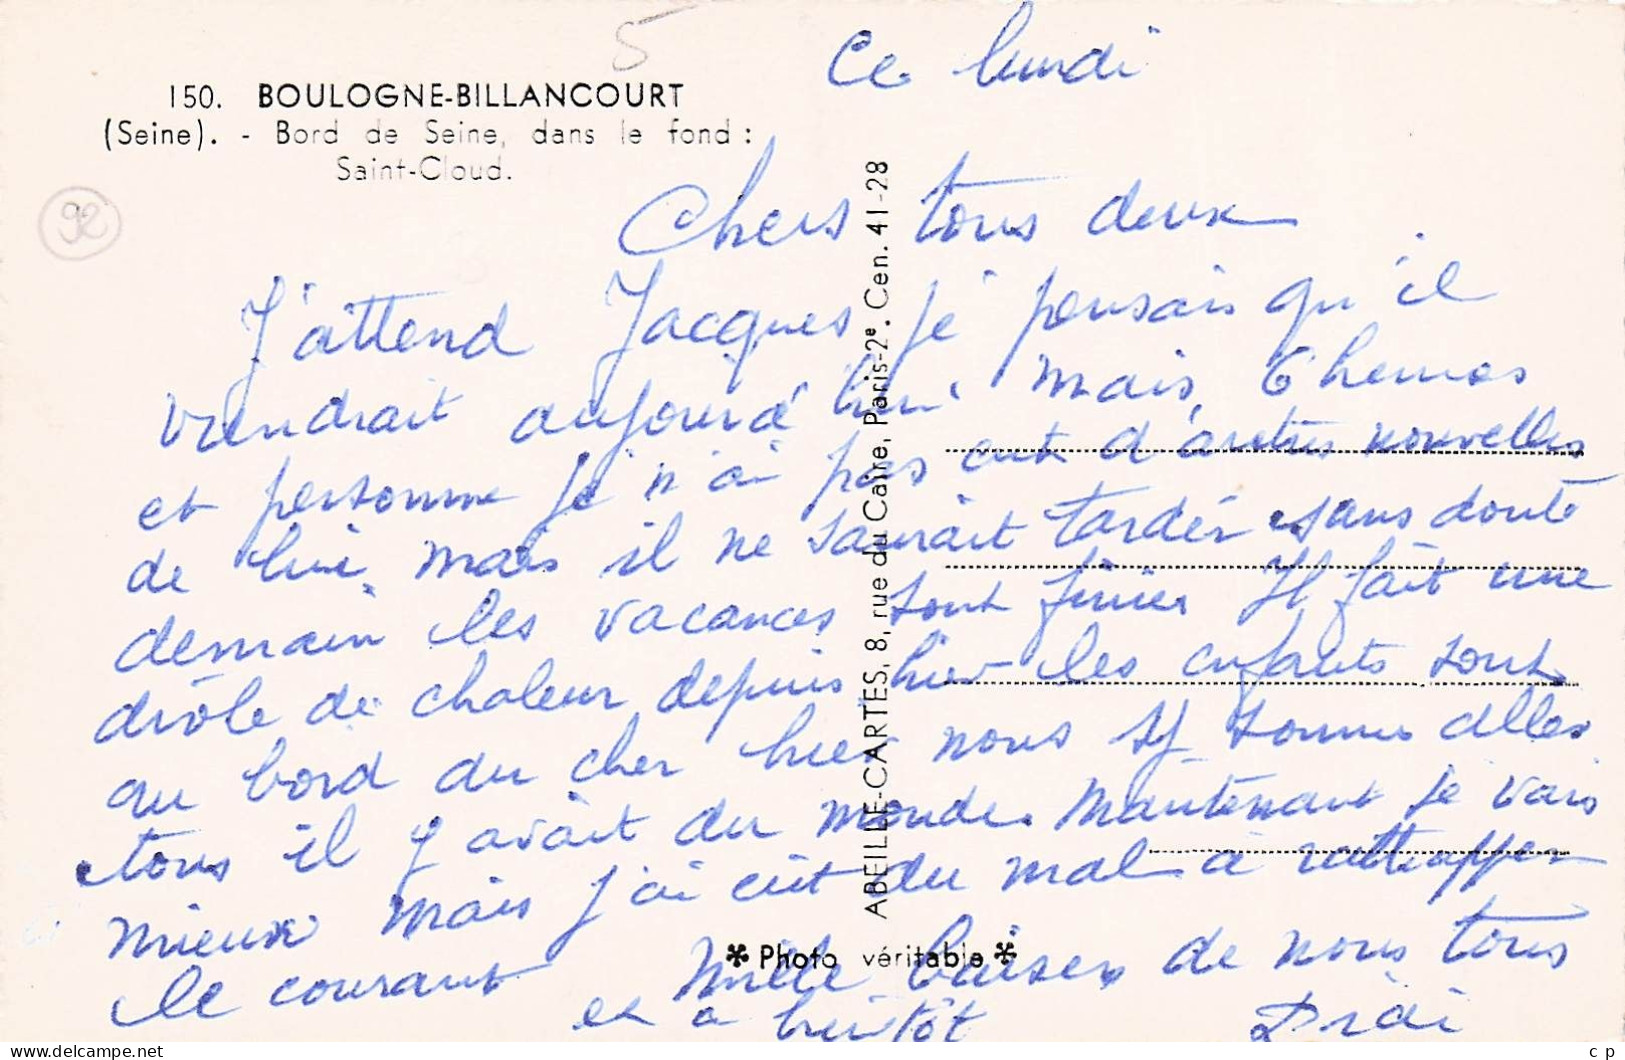 5
Ce lundi
150. BOULOGNE-BILLANCOURT
(Seine). - Bord de Seine, dans le fond :
Saint-Cloud.
92
Chers tous deux
J'attend Jacques je pensais qu'il
viendrait aujourd'hui mais
et personne je n'ai pas eut d'autres nouvelles
de lui, mais il ne saurait tarder sans doute
demain les vacances sont finies Il fait une
drôle de chaleur depuis hier les enfants sont
au bord du cher hier nous y sommes alles
tous il y avait du monde. Maintenant je vais
mieux mais j'ai eut du mal a rattrapper
le courant Mille baisers de nous tous
et a bientôt Didi
ABEILLE-CARTES, 8, rue du Caire, Paris-2e. Cen. 41-28
* Photo véritable *
c p